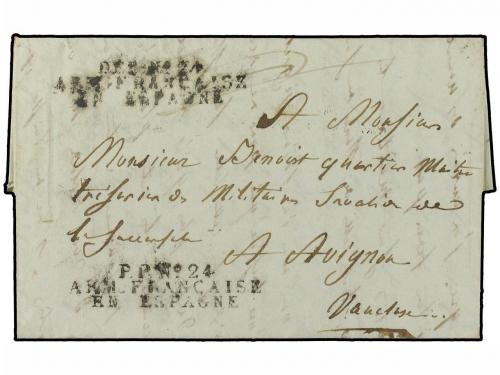 DEB. Nº 24
ARM. FRANÇAISE
EN ESPAGNE
A Monsieur
Monsieur Benoist quartier Maitre
trésorier des Militaires Invalides de
la Succursale
A Avignon
P.P. Nº 24
ARM. FRANÇAISE
EN ESPAGNE
Vaucluse